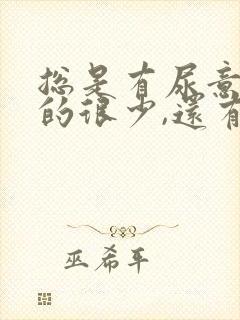 总是有尿意
的很少,还有
巫希平